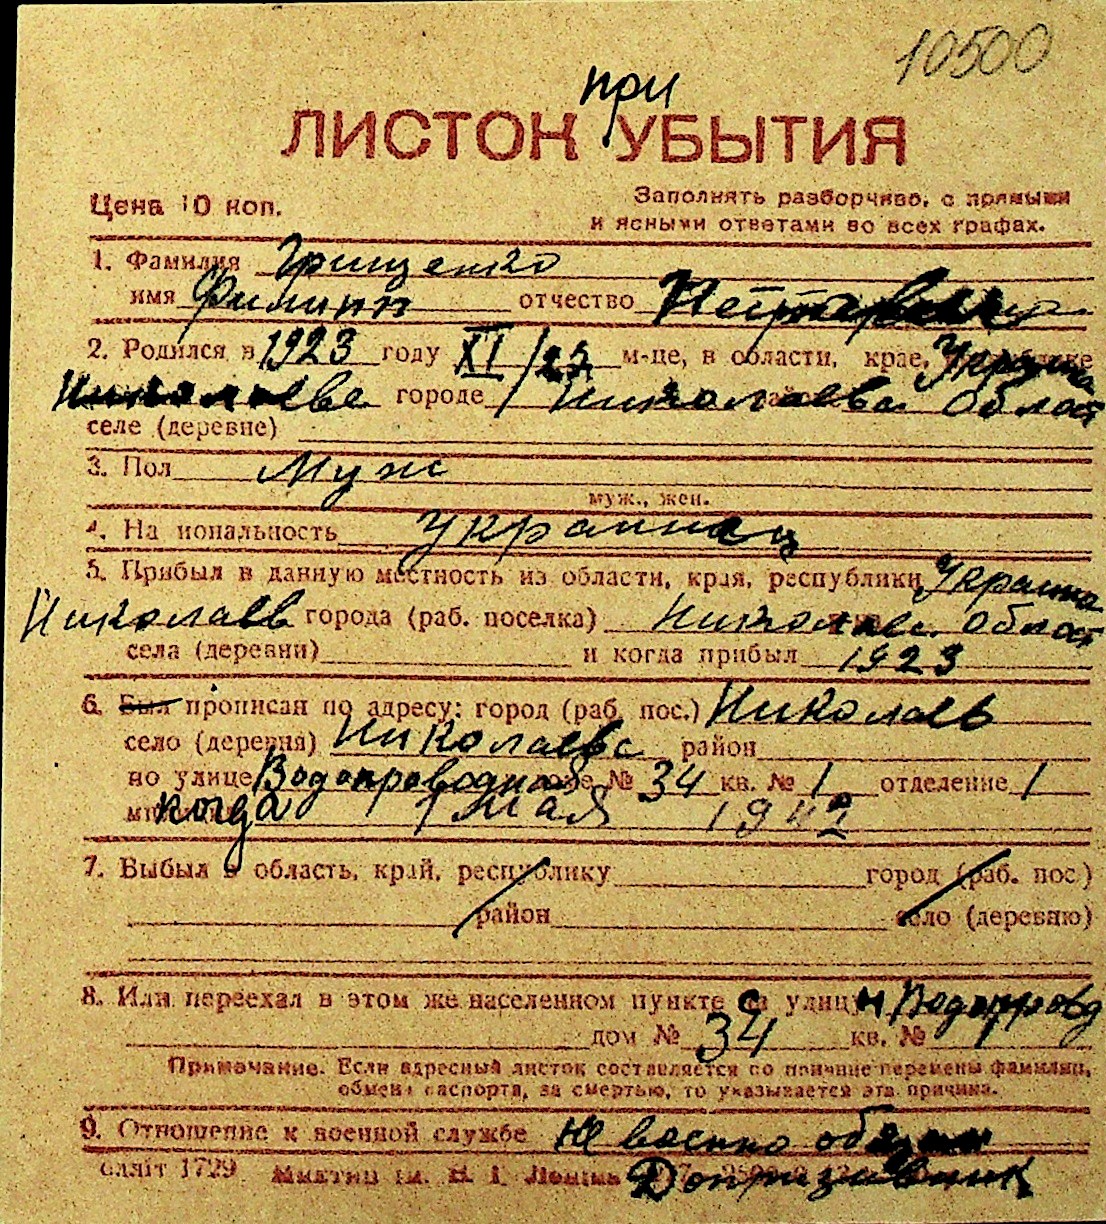 10500
при
ЛИСТОК УБЫТИЯ
Цена 10 коп.
Заполнять разборчиво, с прямыми
и ясными ответами во всех графах.
1. Фамилия Грищенко
имя Филипп отчество
2. Родился в 1923 году XI/25 м-це, в области, крае, Украина
Николаеве городе Николаевс. Област
селе (деревне)
3. Пол Муж
муж., жен.
4. Национальность украинец
5. Прибыл в данную местность из области, края, республики Украина
Николаев города (раб. поселка) Николаевс. Област
села (деревни) и когда прибыл 1923
6. Был прописан по адресу: город (раб. пос.) Николаев
село (деревня) Николаевс район
по улице Водопроводная № 34 кв. № 1 отделение 1
когда 1 мая 1942
7. Выбыл в область, край, республику город (раб. пос.)
район село (деревню)
8. Или переехал в этом же населенном пункте с улицы Водопровд
дом № 34 кв. № 1
Примечание. Если адресный листок составляется по причине перемены фамилии,
обмена паспорта, за смертью, то указывается эта причина.
9. Отношение к военной службе не военно обязан
1729 Допризавник